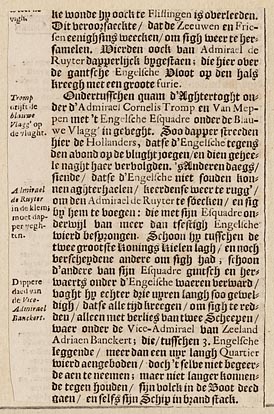 ke wonde hy oock te Flissingen is overleeden.
Dit veroorsaeckte / dat de Zeeuwen en Frie-
sen eenighsins weecken / om sigh weer te her-
samelen. Wierden oock van Admirael de
Ruyter dapperlijck bygestaen; die hier over
de gantsche Engelsche Vloot op den hals
kreegh met een groote furie.
Ondertusschen quam d'Aghtertoght on-
der d'Admirael Cornelis Tromp en Van Mep-
pen met 't Engelsche Esquadre onder de Blau-
we Vlagg' in gevecht. Soo dapper streeden
hier de Hollanders, datse d'Engelsche tegens
den avond op de vlught joegen / en dien gehee-
le naght haer vervolgden. 's Anderen daegs /
siende / datse d'Engelsche niet souden kon-
nen aghterhaelen / keerdense weer te rugg' /
om den Admirael de Ruyter te soecken / en sig
by hem te voegen: die met sijn Esquadre on-
derwijl van meer dan tsestigh Engelsche
wierd besprongen. Schoon hy tusschen de
twee grootste Konings kielen lagh / en noch
verscheydene andere om sigh had; schoon
d'andere van sijn Esquadre gintsch en her-
waerts onder d'Engelsche waeren verward /
voght hy echter drie uyren langh soo gewel-
digh / datse alle tijd kreegen / om sigh te red-
den / alleen met verlies van twee Scheepen /
waer onder de Vice-Admirael van Zeeland
Adriaen Banckert; die / tusschen 3. Engelsche
leggende / meer dan een uyr langh Quartier
wierd aengeboden / doch 't selve niet begeer-
de aen te neemen; maer niet langer konnen-
de tegen houden / sijn volck in de Boot deed
gaen / en selfs sijn Schip in brand stack.
vlugh.
Tromp
drijft de
blauwe
Vlagg' op
de vlught.
Admirael
de Ruyter
in de klem;
moet dap-
per vegh-
ten.
Dappere
daed van
de Vice-
Admirael
Banckert.